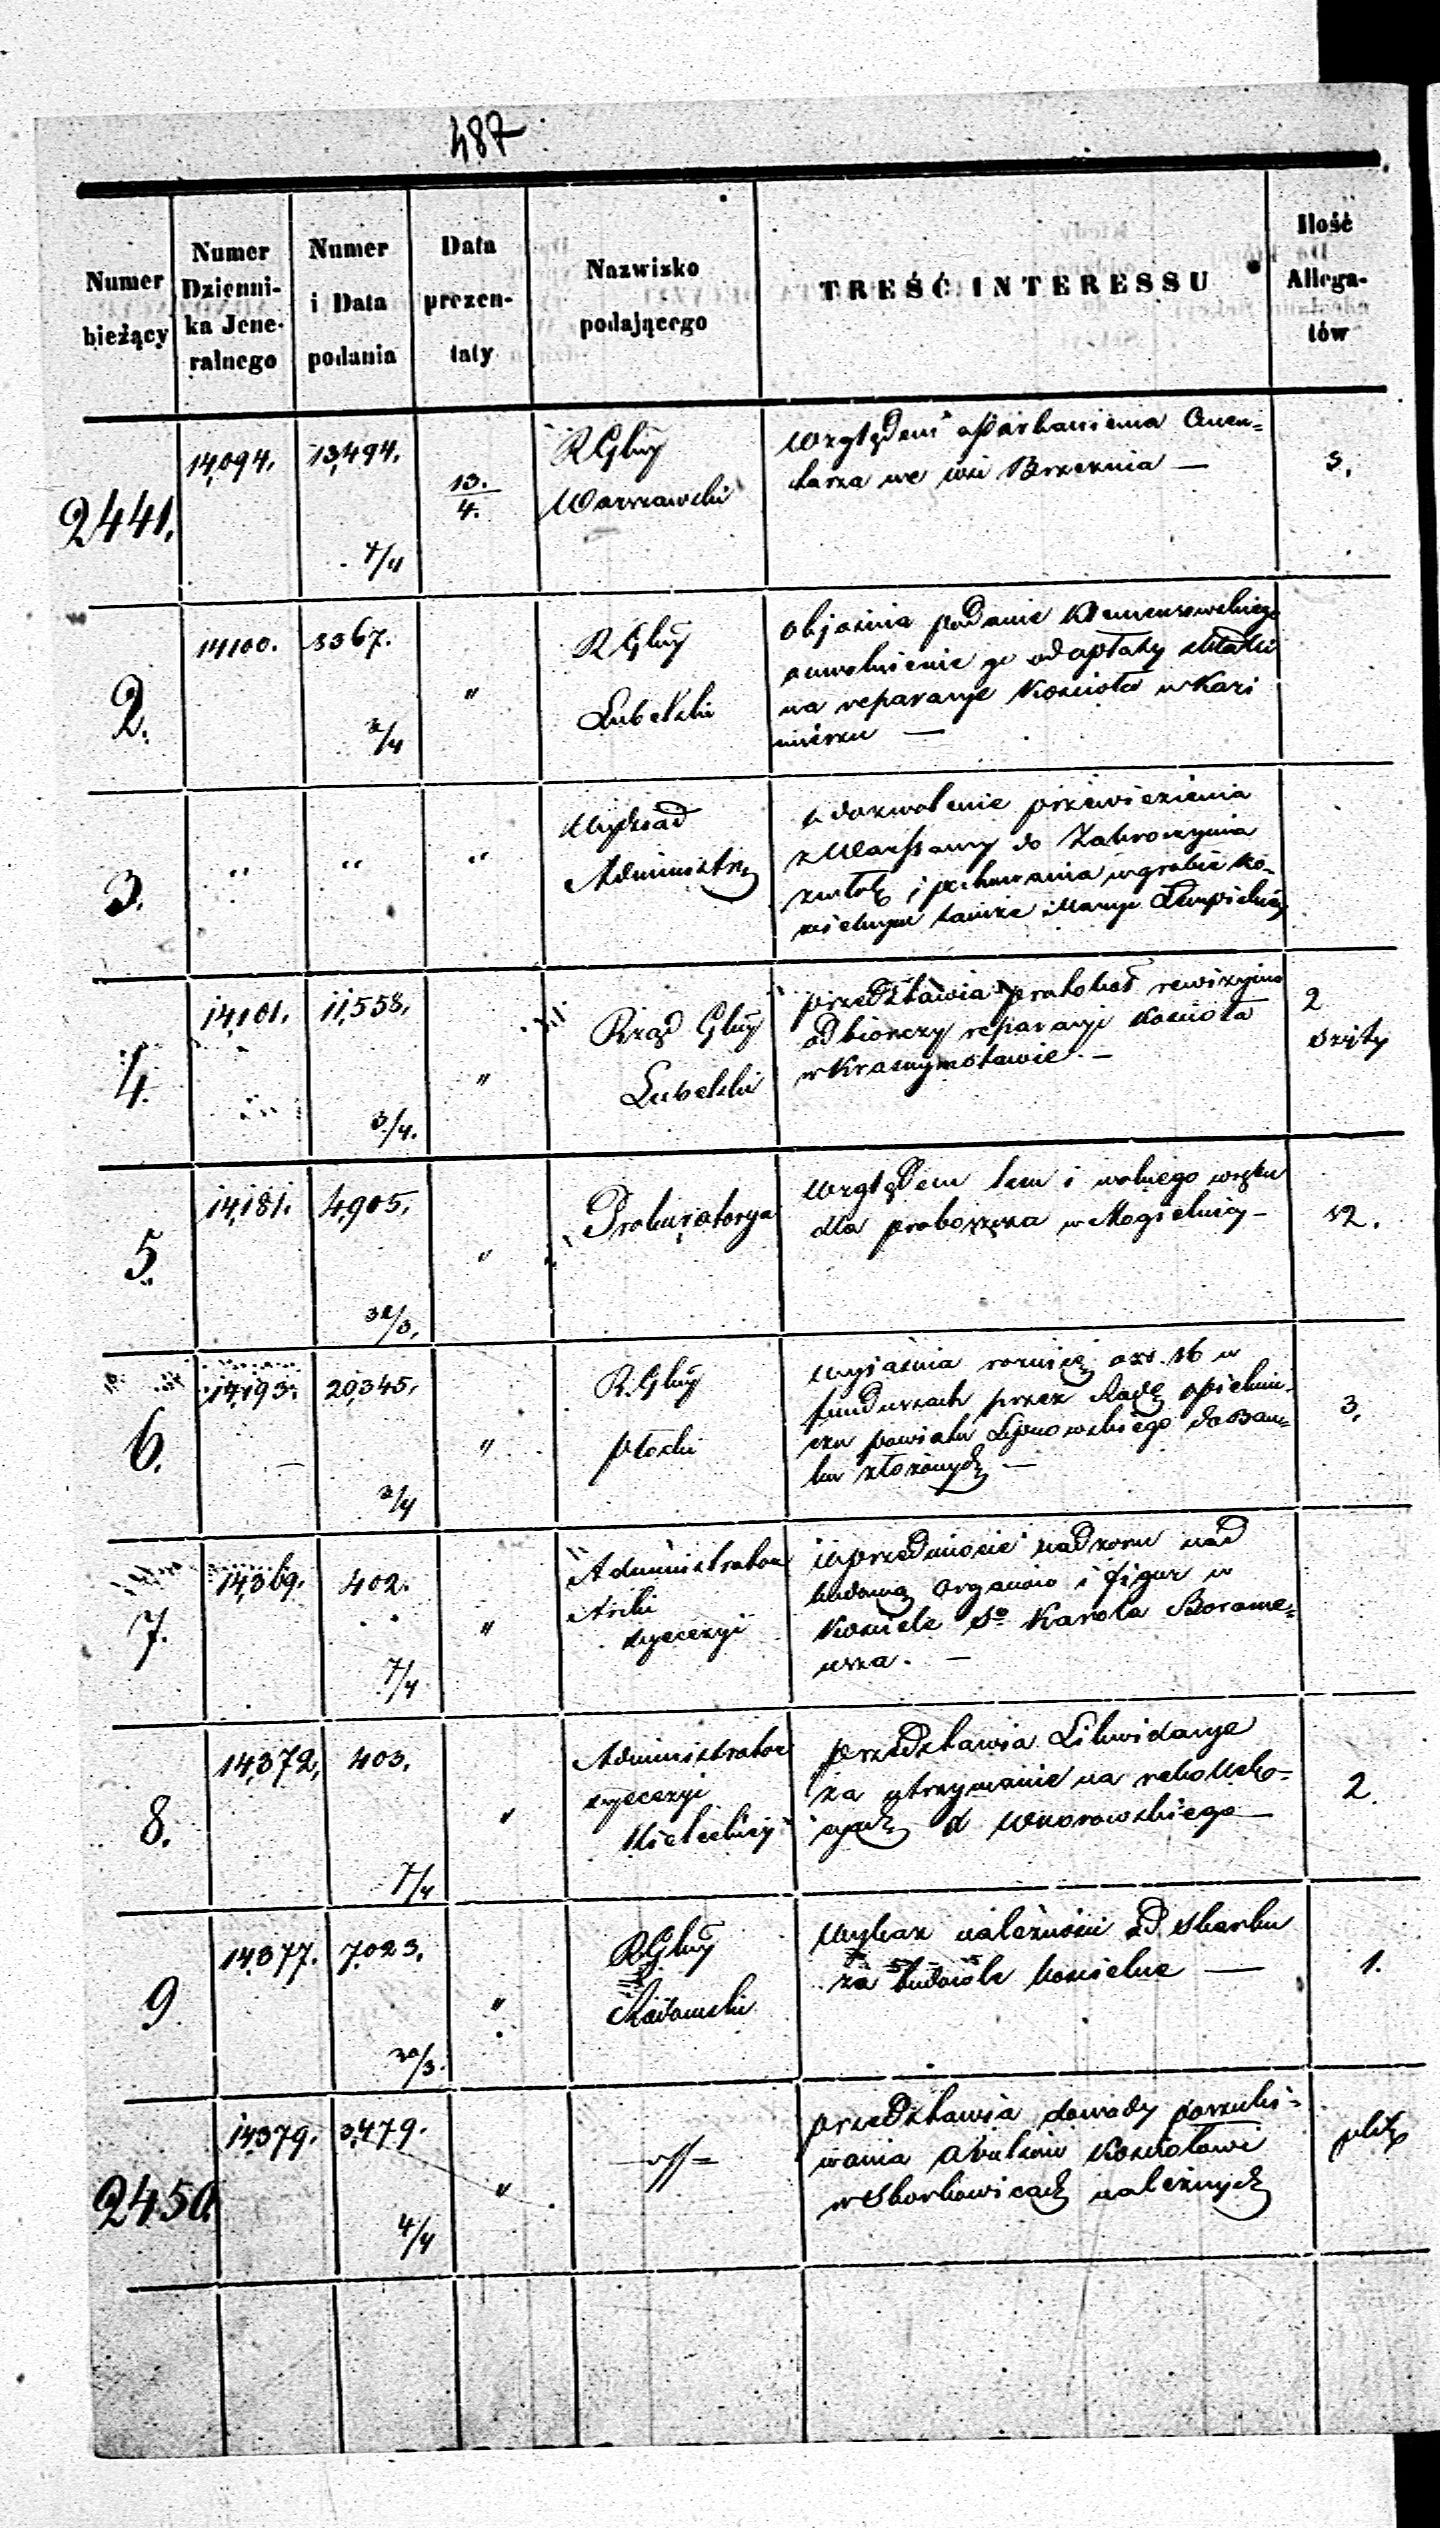 487
Numer bieżący
Numer Dzienni-ka Jene-ralnego
Numer i Data podania
Data prezen-taty
Nazwisko podającego
TREŚĆ INTERESSU
Ilość Allega-tów
2441.
14,094.
13,494.
7/4
13./4.
RGlny
Warszawski
Względem oparkanienia Cmen=
tarza we wsi Brzeznia —
2.
14100.
3367.
3/4
"
RGlny
Lubelski
objaśnia podanie
o uwolnienie go od opłaty składki
na reparacye Kościoła w Kazi
mierzu —
3.
"
"
"
Wydział
Administr.
o dozwolenie przewiezienia
z Warszawy do Zakroczymia
zwłok i pochowania w grobie ko-
scielnym tamże Maryi
4.
14,101.
11,558.
3/4.
"
Rząd Glny
Lubelski
przedstawia protokoł rewizyjno
odbiorczy reparacyi Kościoła
w Krasnymstawie. —
2
szyty
5.
14,181.
4,905.
"
Prokuratorya
Względem i wolnego
dla proboszcza w Mogielnicy —
12.
6.
14,193.
20,345.
3/4
"
R.Glny
Płocki
wyjaśnia roznicę w
funduszach przez Radę Opiekuń-
czą powiatu Lipnowskiego do Ban=
ku złożonych —
3.
7.
14,369.
402.
7/4
"
Administrator
Archi
dyecezyi
w przedmiocie nadzoru nad
budową organów i figur w
Kosciele So Karola Borome=
usza. —
8.
14,372,
403.
7/4
"
Administrator
dyecezyi
Kieleckiej
przedstawia Likwidacye
za utrzymanie na rekollek=
cyach X
2.
9
14,377.
7,023.
"
RGlny
Radomski
Wykaz należności od skarbu
za kościelne —
1.
2450.
14379.
3,479.
4/4
"
przedstawia dowody poszuki=
wania Kościołowi
w Skorkowicach należnych
plik